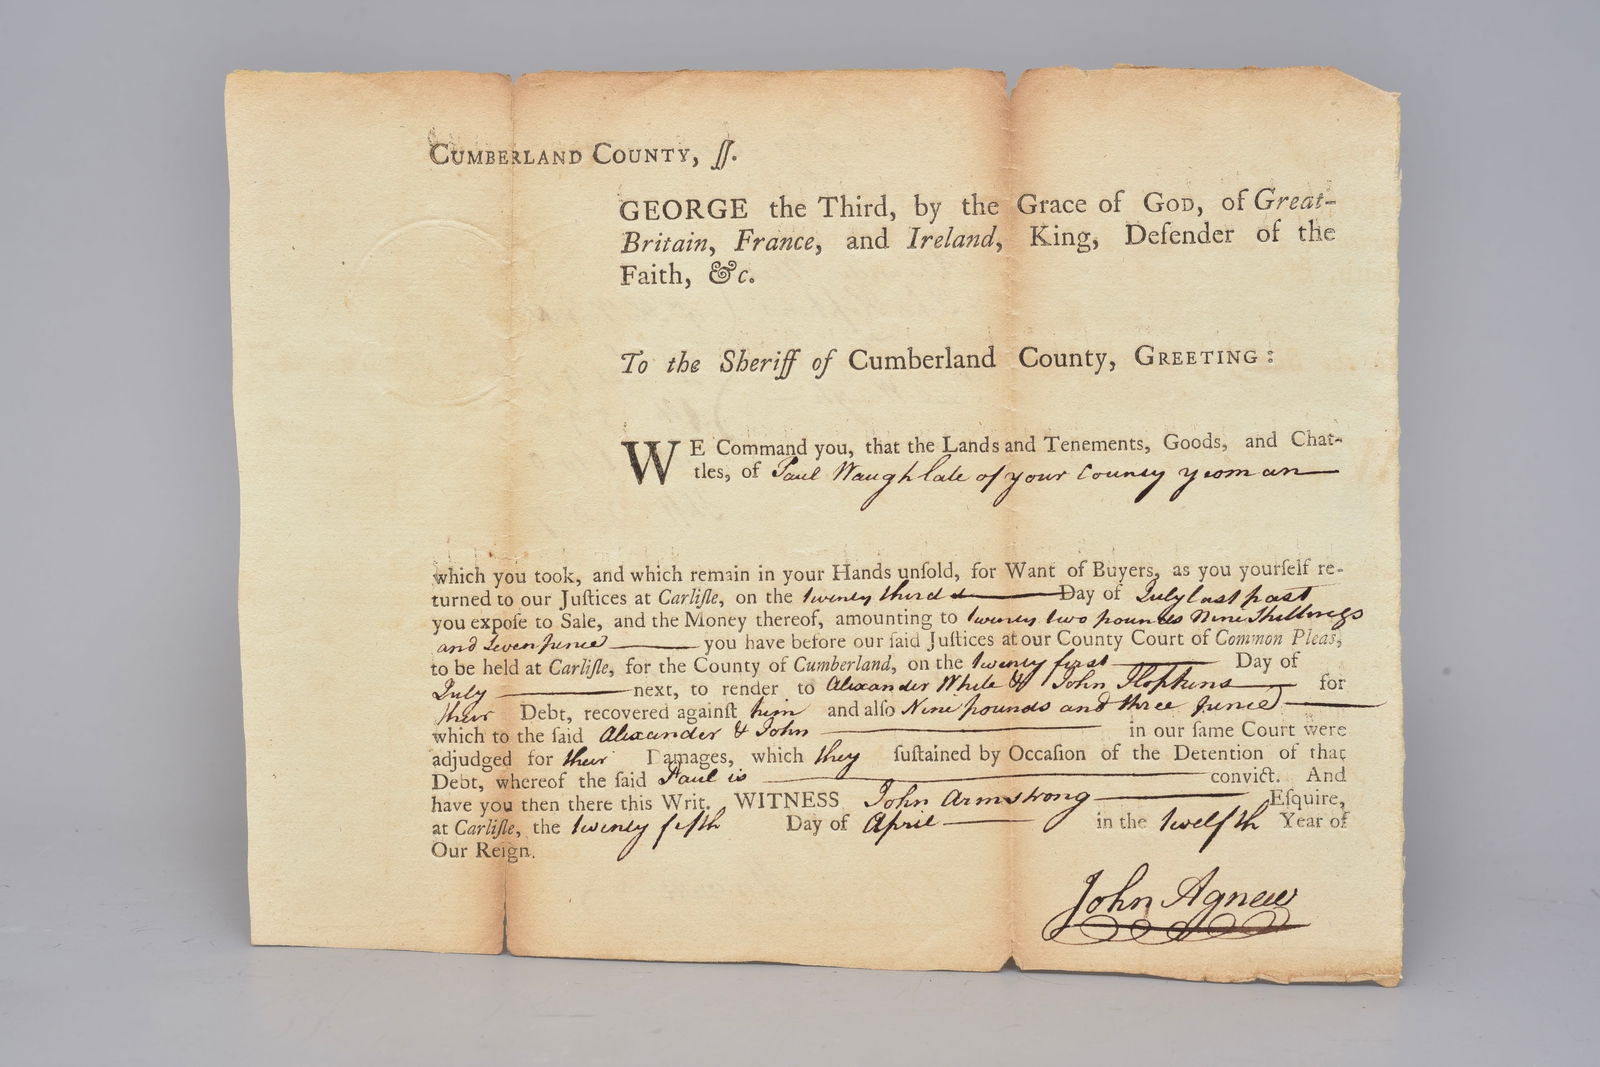 CUMBERLAND COUNTY, ſſ.
GEORGE the Third, by the Grace of GOD, of Great-
Britain, France, and Ireland, King, Defender of the
Faith, &c.
To the Sheriff of Cumberland County, GREETING:
WE Command you, that the Lands and Tenements, Goods, and Chat-
tles, of Paul Waugh late of your County yeoman
which you took, and which remain in your Hands unſold, for Want of Buyers, as you yourſelf re-
turned to our Juſtices at Carliſle, on the twenty third Day of July last past
you expoſe to Sale, and the Money thereof, amounting to twenty two pounds Nine Shillings
and Seven pence you have before our ſaid Juſtices at our County Court of Common Pleas,
to be held at Carliſle, for the County of Cumberland, on the twenty first Day of
July next, to render to Alexander White & John Hopkins for
their Debt, recovered againſt him and alſo Nine pounds and three pence
which to the ſaid Alexander & John in our ſame Court were
adjudged for their Damages, which they ſuſtained by Occaſion of the Detention of that
Debt, whereof the ſaid Paul is convict. And
have you then there this Writ. WITNESS John Armstrong Eſquire,
at Carliſle, the twenty fifth Day of April in the twelfth Year of
Our Reign.
John Agnew